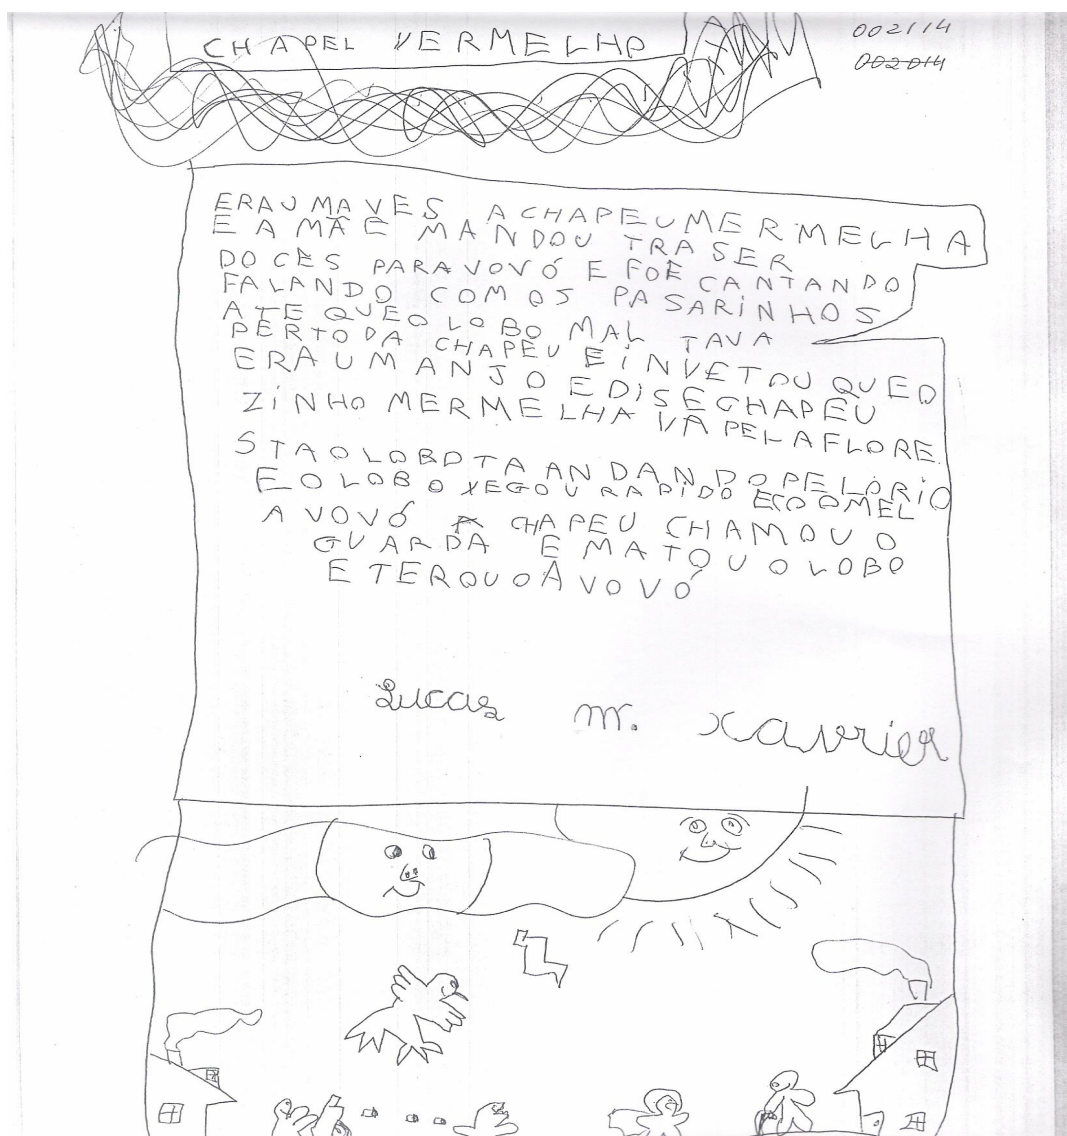 CHAPEL VERMELHO
002114
002014
ERAUMAVES A CHAPEUMERMELHA
E A MÃE MANDOU TRASER
DOCES PARAVOVÓ E FOE CANTANDO
FALANDO COM OS PASARINHOS
ATE QUEO LOBO MAL TAVA
PERTODA CHAPEU EINVETOU QUEO
ERAUMANJO E DISECHAPEU
ZINHO MERMELHA VA PELAFLORE.
STAOLOBOTA ANDANDOPELORIO
EOLOBO XEGOU RAPIDO ECOOMEL
A VOVÓ A CHAPEU CHAMOU O
GUARDA E MATOU O LOBO
E TEROUOA VOVÓ
Lucas M. Xavier